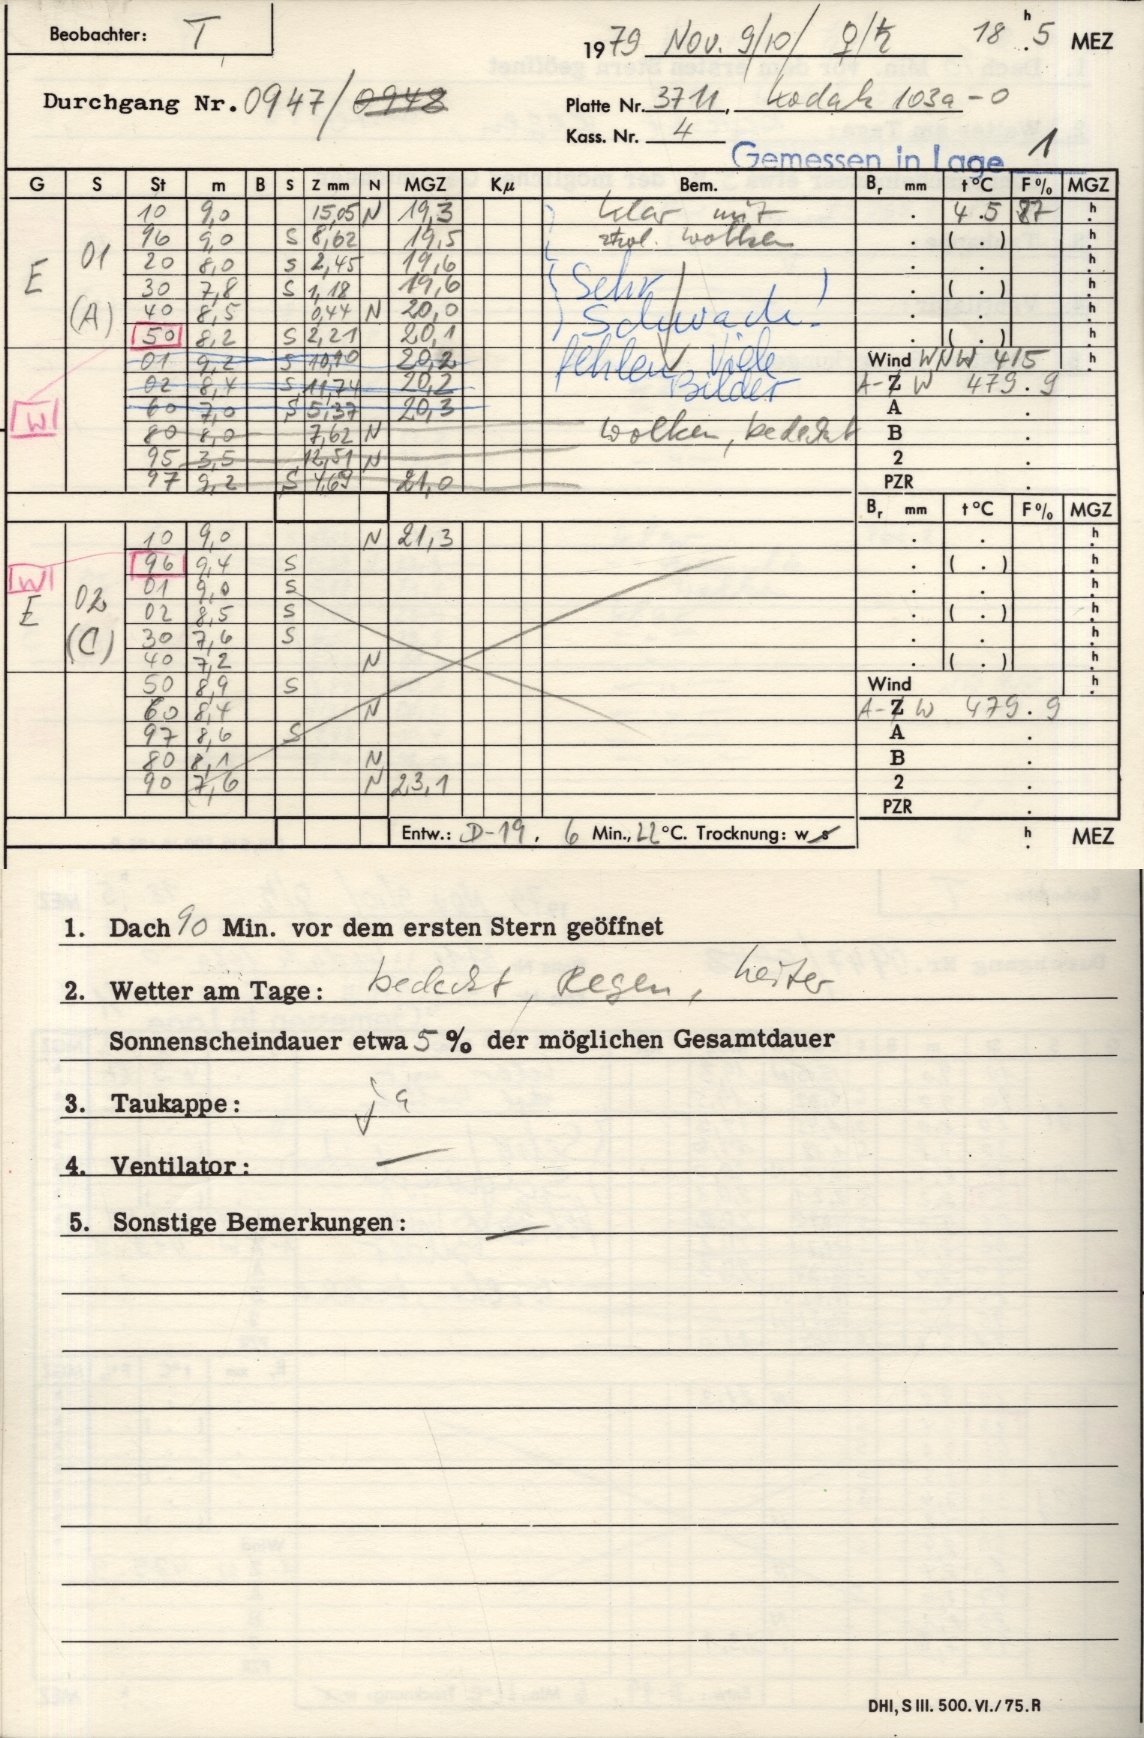 Beobachter: T
1979 Nov. 9/10/ ♀/♄ 18 h . 5 MEZ
Durchgang Nr. 0947/0948
Platte Nr. 3711, Kodak 103a-O
Kass. Nr. 4
Gemessen in Lage 1
G S St m B S Z mm N MGZ Kμ Bem. Br mm t°C F% MGZ
10 9,0 15,05 N 19,3 klar mit . 4.5 87 h
96 9,0 S 8,62 19,5 Wolken . ( . ) h
E 01 20 8,0 S 2,45 19,6 . . h
30 7,8 S 1,18 19,6 (Sehr) . ( . ) h
(A) 40 8,5 0,44 N 20,0 Schwach. . . h
50 8,2 S 2,21 20,1 . ( . ) h
01 9,2 S 10,90 20,2 fehlen viele Wind WNW 4/5 h
02 8,4 S 11,74 20,2 Bilder A-Z W 479.9
W 60 7,0 S 5,37 20,3 A .
80 8,0 7,62 N Wolken, bedeckt B .
95 3,5 12,51 N 2 .
97 9,2 S 4,69 21,0 PZR .
Br mm t°C F% MGZ
10 9,0 N 21,3 . . h
W 96 9,4 S . ( . ) h
E 02 01 9,0 S . . h
02 8,5 S . ( . ) h
(C) 30 7,6 S . . h
40 7,2 N . ( . ) h
50 8,9 S Wind h
60 8,4 N A-Z W 479.9
97 8,6 S A .
80 8,1 N B .
90 7,6 N 23,1 2 .
PZR .
Entw.: D-19. 6 Min., 22 °C. Trocknung: w s h . MEZ
1. Dach 90 Min. vor dem ersten Stern geöffnet
2. Wetter am Tage: bedeckt, Regen, heiter
Sonnenscheindauer etwa 5 % der möglichen Gesamtdauer
3. Taukappe: ja
4. Ventilator: —
5. Sonstige Bemerkungen: —
DHI, S III. 500. VI./75. R